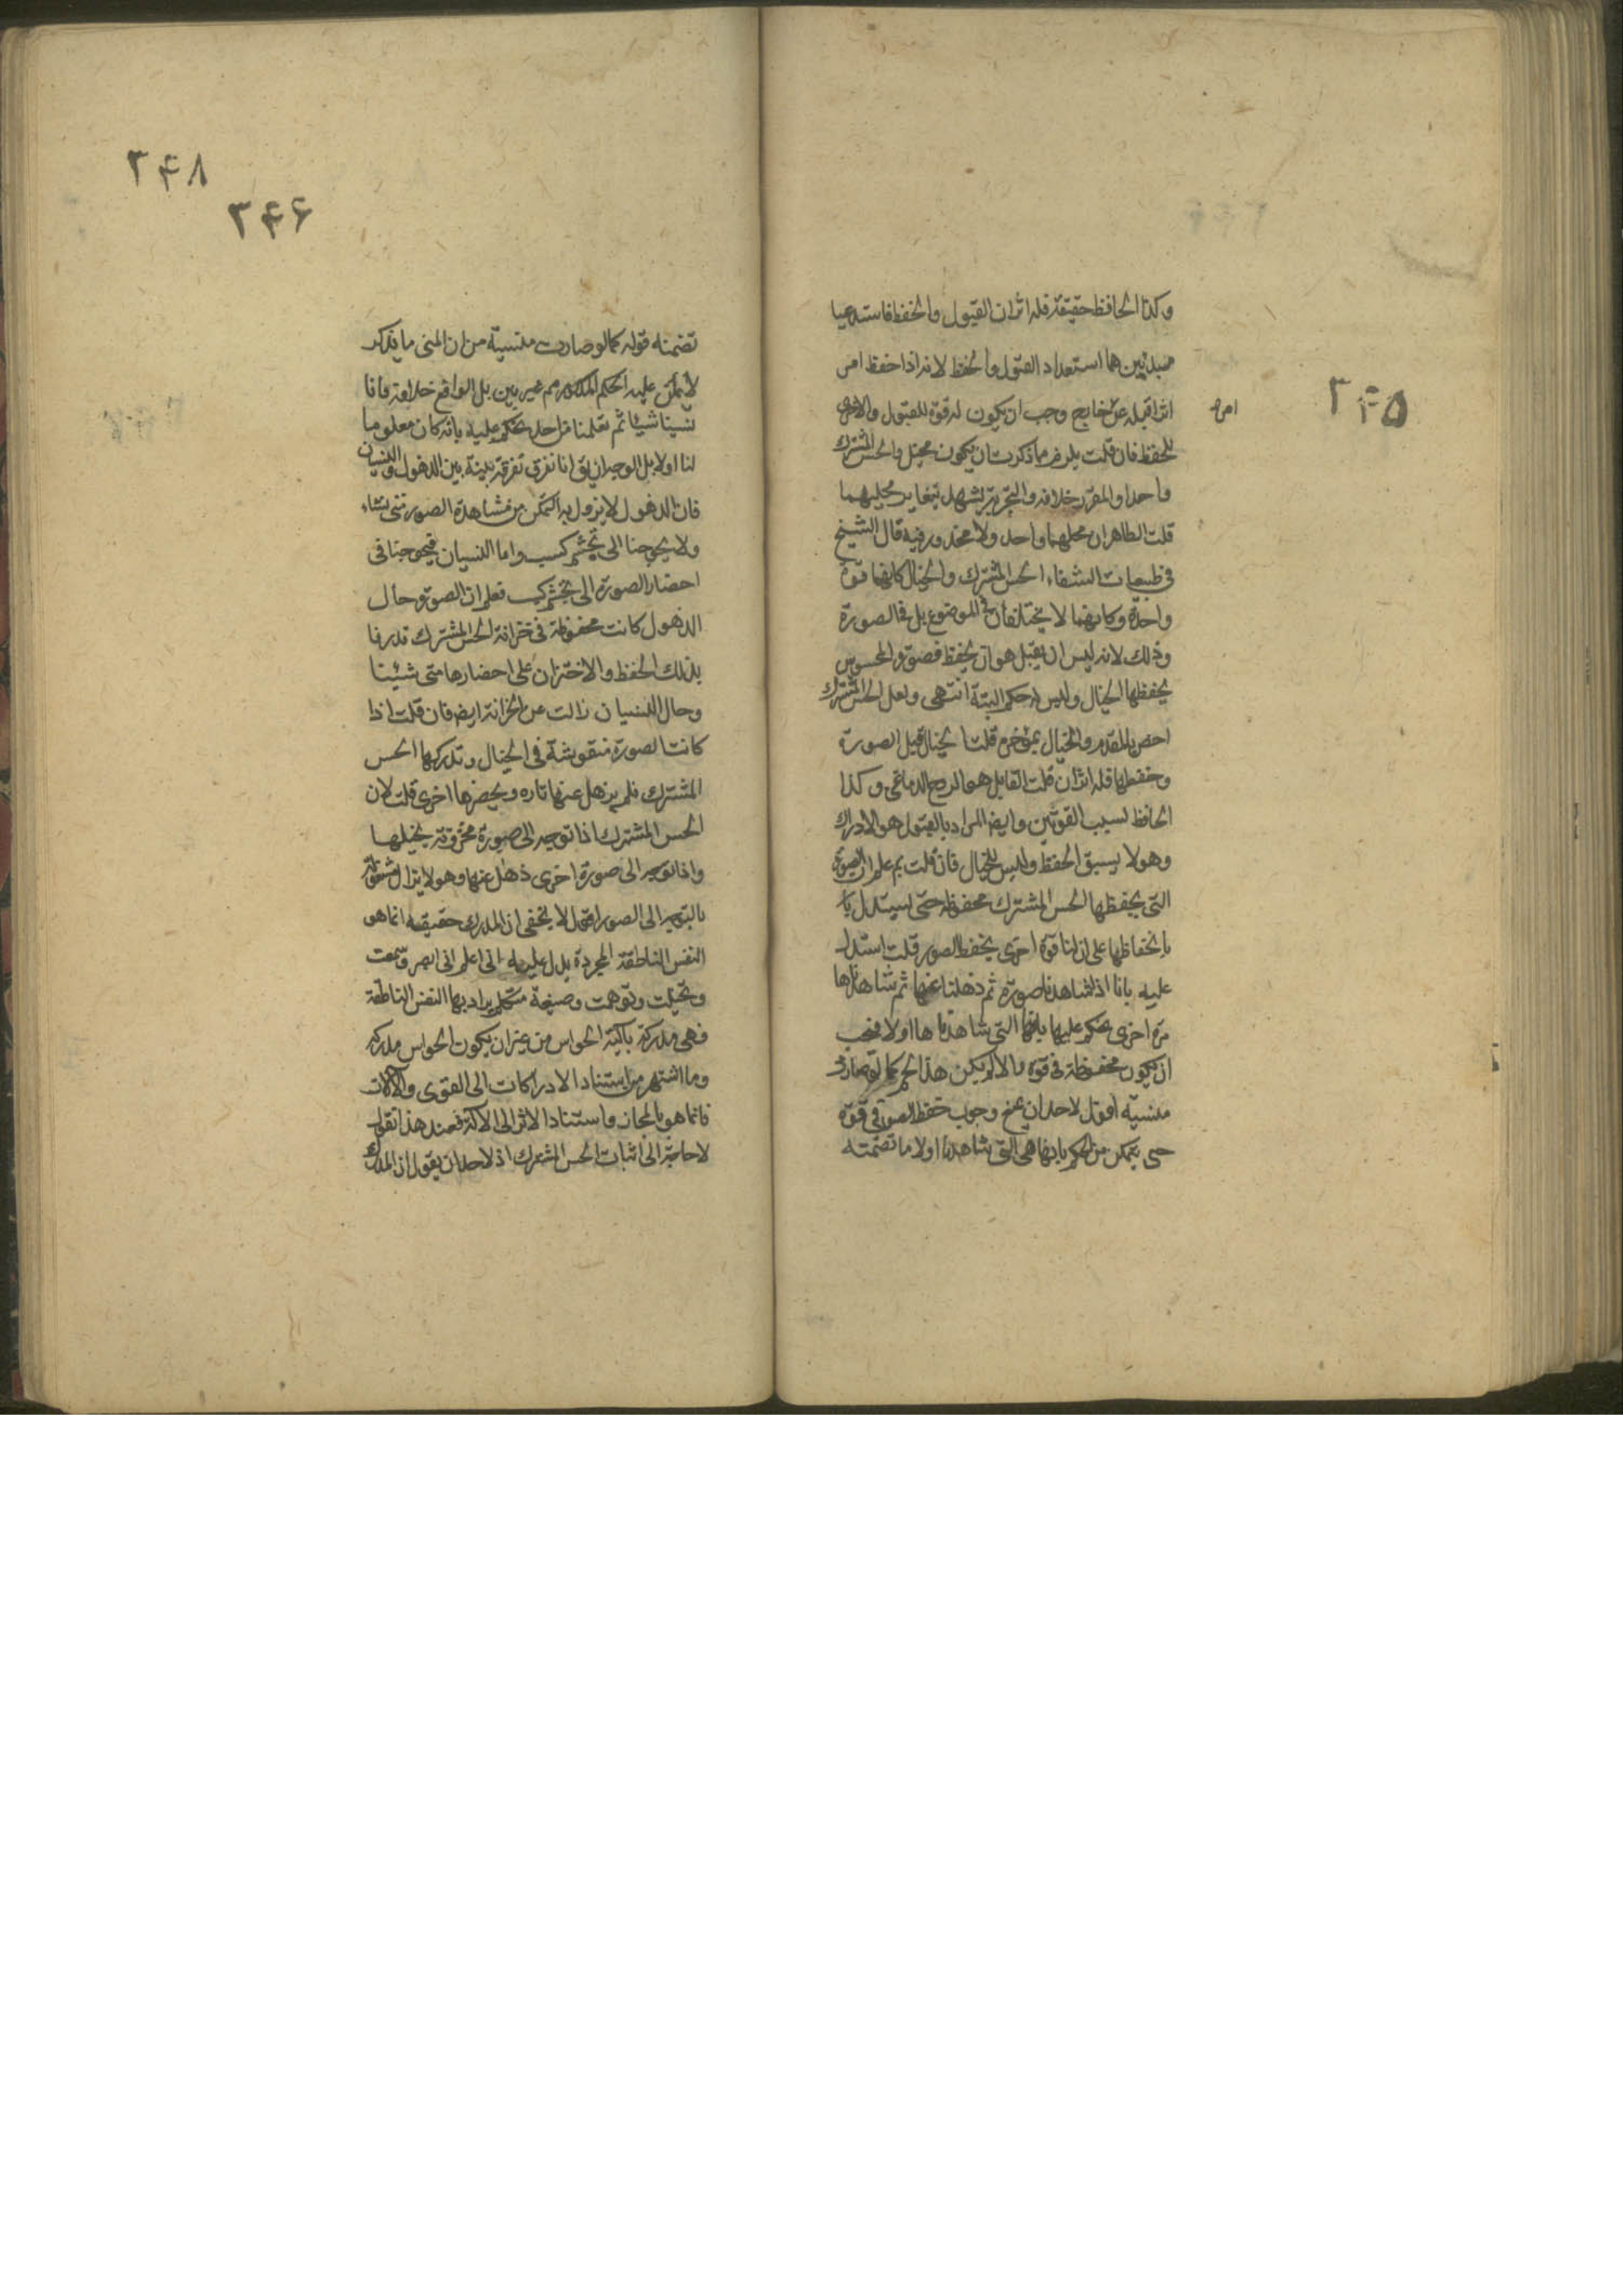 ۲۴۵
وكذا الحافظ حقيقة فله اثران القبول والحفظ فاستدعيا
مبدئين هما استعداد القبول والحفظ لانه اذا حفظ امر
اثرا قبله عن خارج وجب ان يكون له قوة للقبول والاخرى
امر
للحفظ فان قلت يلزم مما ذكرت ان يكون محل والحس المشترك
واحدا والمقرر خلافه والتجربة تشهد بتغاير محليهما
قلت الظاهر ان محلهما واحد ولا محذور فيه قال الشيخ
فى طبيعيات الشفاء الحس المشترك والخيال كانهما قوة
واحدة وكانهما لا يختلفان فى الموضوع بل فى الصورة
وذلك لانه ليس ان يقبل هو ان يحفظ فصورة المحسوس
يحفظها الخيال وليس له حكم البتة انتهى ولعل الحس المشترك
اخص بالمقدم والخيال بمؤخره قلت الخيال قبل الصورة
وحفظها فله اثران قلت القابل هو الروح الدماغى وكذا
الحافظ لسبب القوتين وايضا المراد بالقبول هو الادراك
وهو لا يسبق الحفظ وليس للخيال فان قلت بم علم ان الصورة
التى يحفظها الحس المشترك محفوظة حتى يستدل با
بانحفاظها على ان لنا قوة اخرى يحفظ الصور قلت استدل
عليه بانا اذا شاهدنا صورة ثم ذهلنا عنها ثم شاهدناها
مرة اخرى نحكم عليها بانها التى شاهدناها اولا فيجب
ان يكون محفوظة فى قوة والا لم يكن هذا الحكم كما لو صارت
منسية اقول لاحد ان يمنع وجوب حفظ الصورة فى قوة
حتى يتمكن من الحكم بانها هى التى شاهدنا اولا ما تضمنته
۲۴۸
۲۴۶
تضمنه قوله كما لو صارت منسية من ان المنسى ما يذكر
لا يمكن عليه الحكم المذكور مم غير بين بل الواقع خلافه فانا
نسينا شيئا ثم تعلمنا من احد نحكم عليه بانه كان معلوما
لنا اولا بل الوجدان يق انا نفرق تفرقة بينة بين الذهول والنسيان
فان الذهول لا يزول به التمكن من مشاهدة الصور متى نشاء
ولا يحوجنا الى تجشم كسب واما النسيان فيحوجنا فى
احضار الصورة الى تجشم كسب فعلم ان الصورة حال
الذهول كانت محفوظة فى خزانة الحس المشترك قدرنا
بذلك الحفظ والاختزان على احضارها متى شيئنا
وحال النسيان زالت عن الخزانة ايضا فان قلت اذا
كانت الصورة منقوشة فى الخيال وتدركها الحس
المشترك فلم يذهل عنها تارة ويحضرها اخرى قلت لان
الحس المشترك اذا توجه الى صورة مخزونة يتخيلها
واذا توجه الى صورة اخرى ذهل عنها وهو لا يزال
بالتوجه الى الصور اقول لا يخفى ان المدرك حقيقة انما هو
النفس الناطقة المجردة يدل عليه انى اعلم انى ابصر وسمعت
وتخيلت وتوهمت وصيغة متكلم يراد بها النفس الناطقة
فهى مدركة بآلية الحواس من غير ان يكون الحواس مدركة
وما اشتهر من استناد الادراكات الى القوى والآلات
فانما هو بالمجاز واستناد الاثر الى الآلة فعند هذا نقول
لا حاجة الى اثبات الحس المشترك اذ لاحد ان يقول ان المدرك